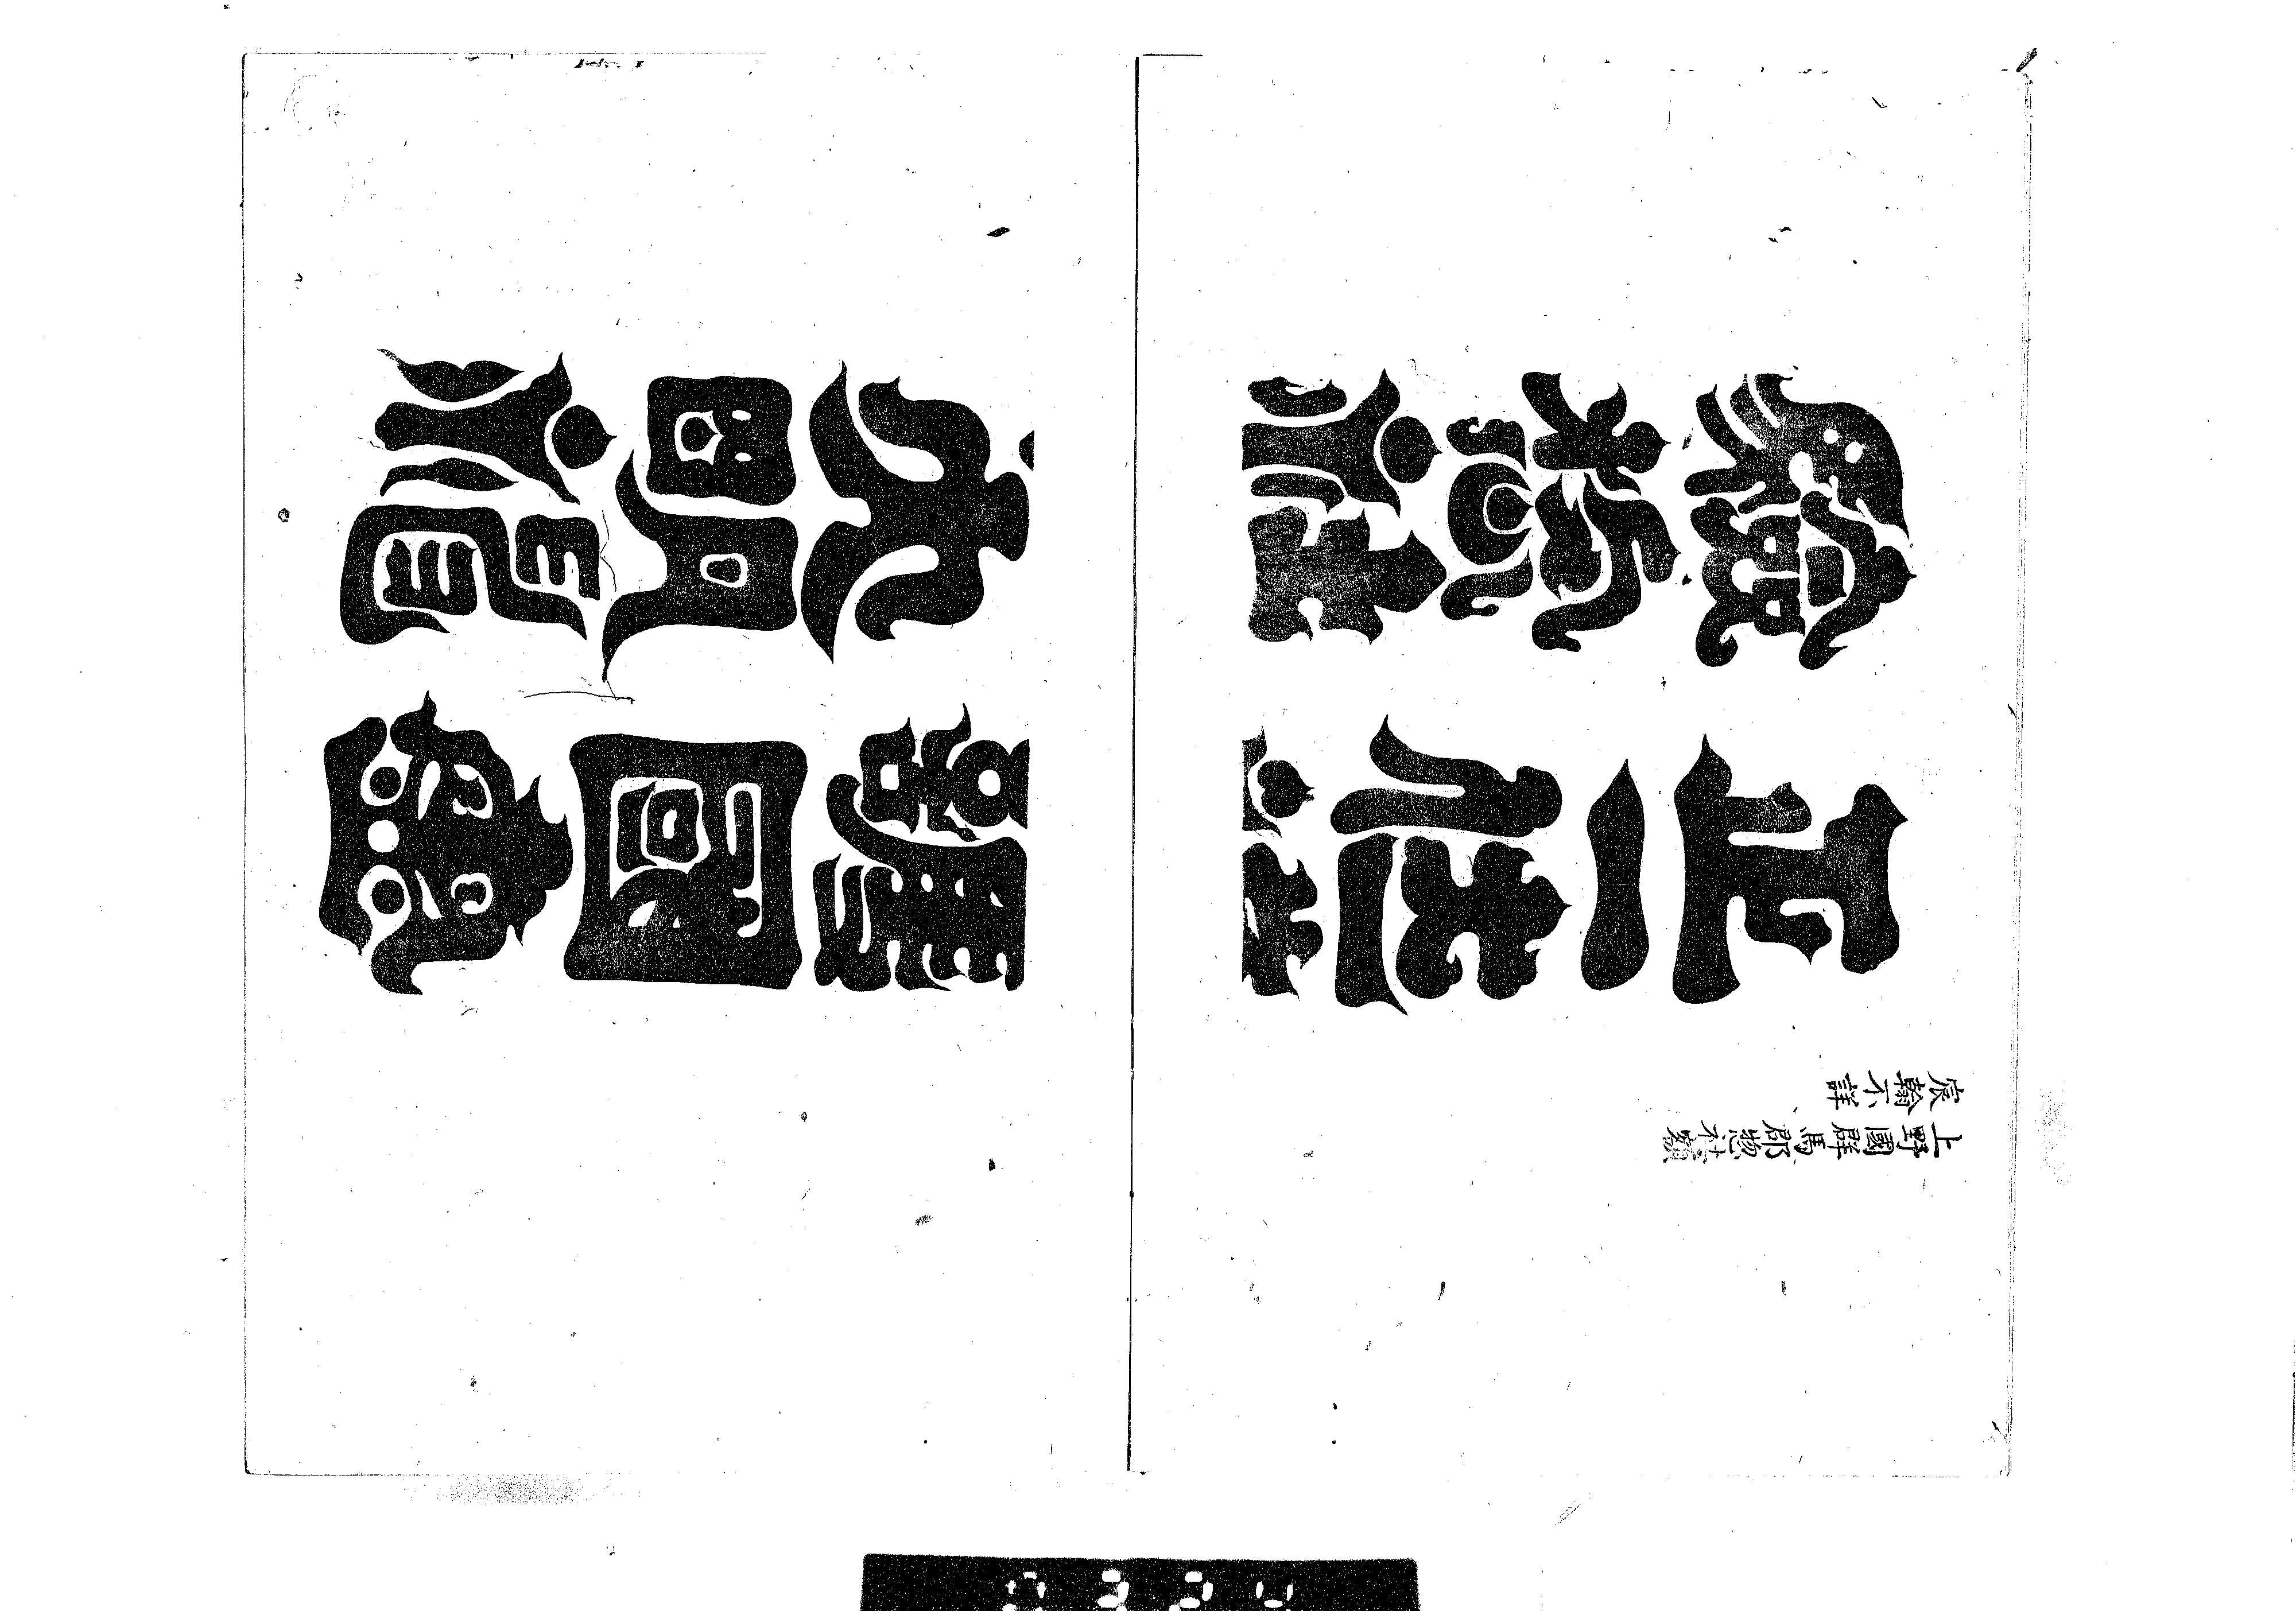 上野國群馬郡惣社額
宸翰不詳
正一位護國靈
驗惣社大明神